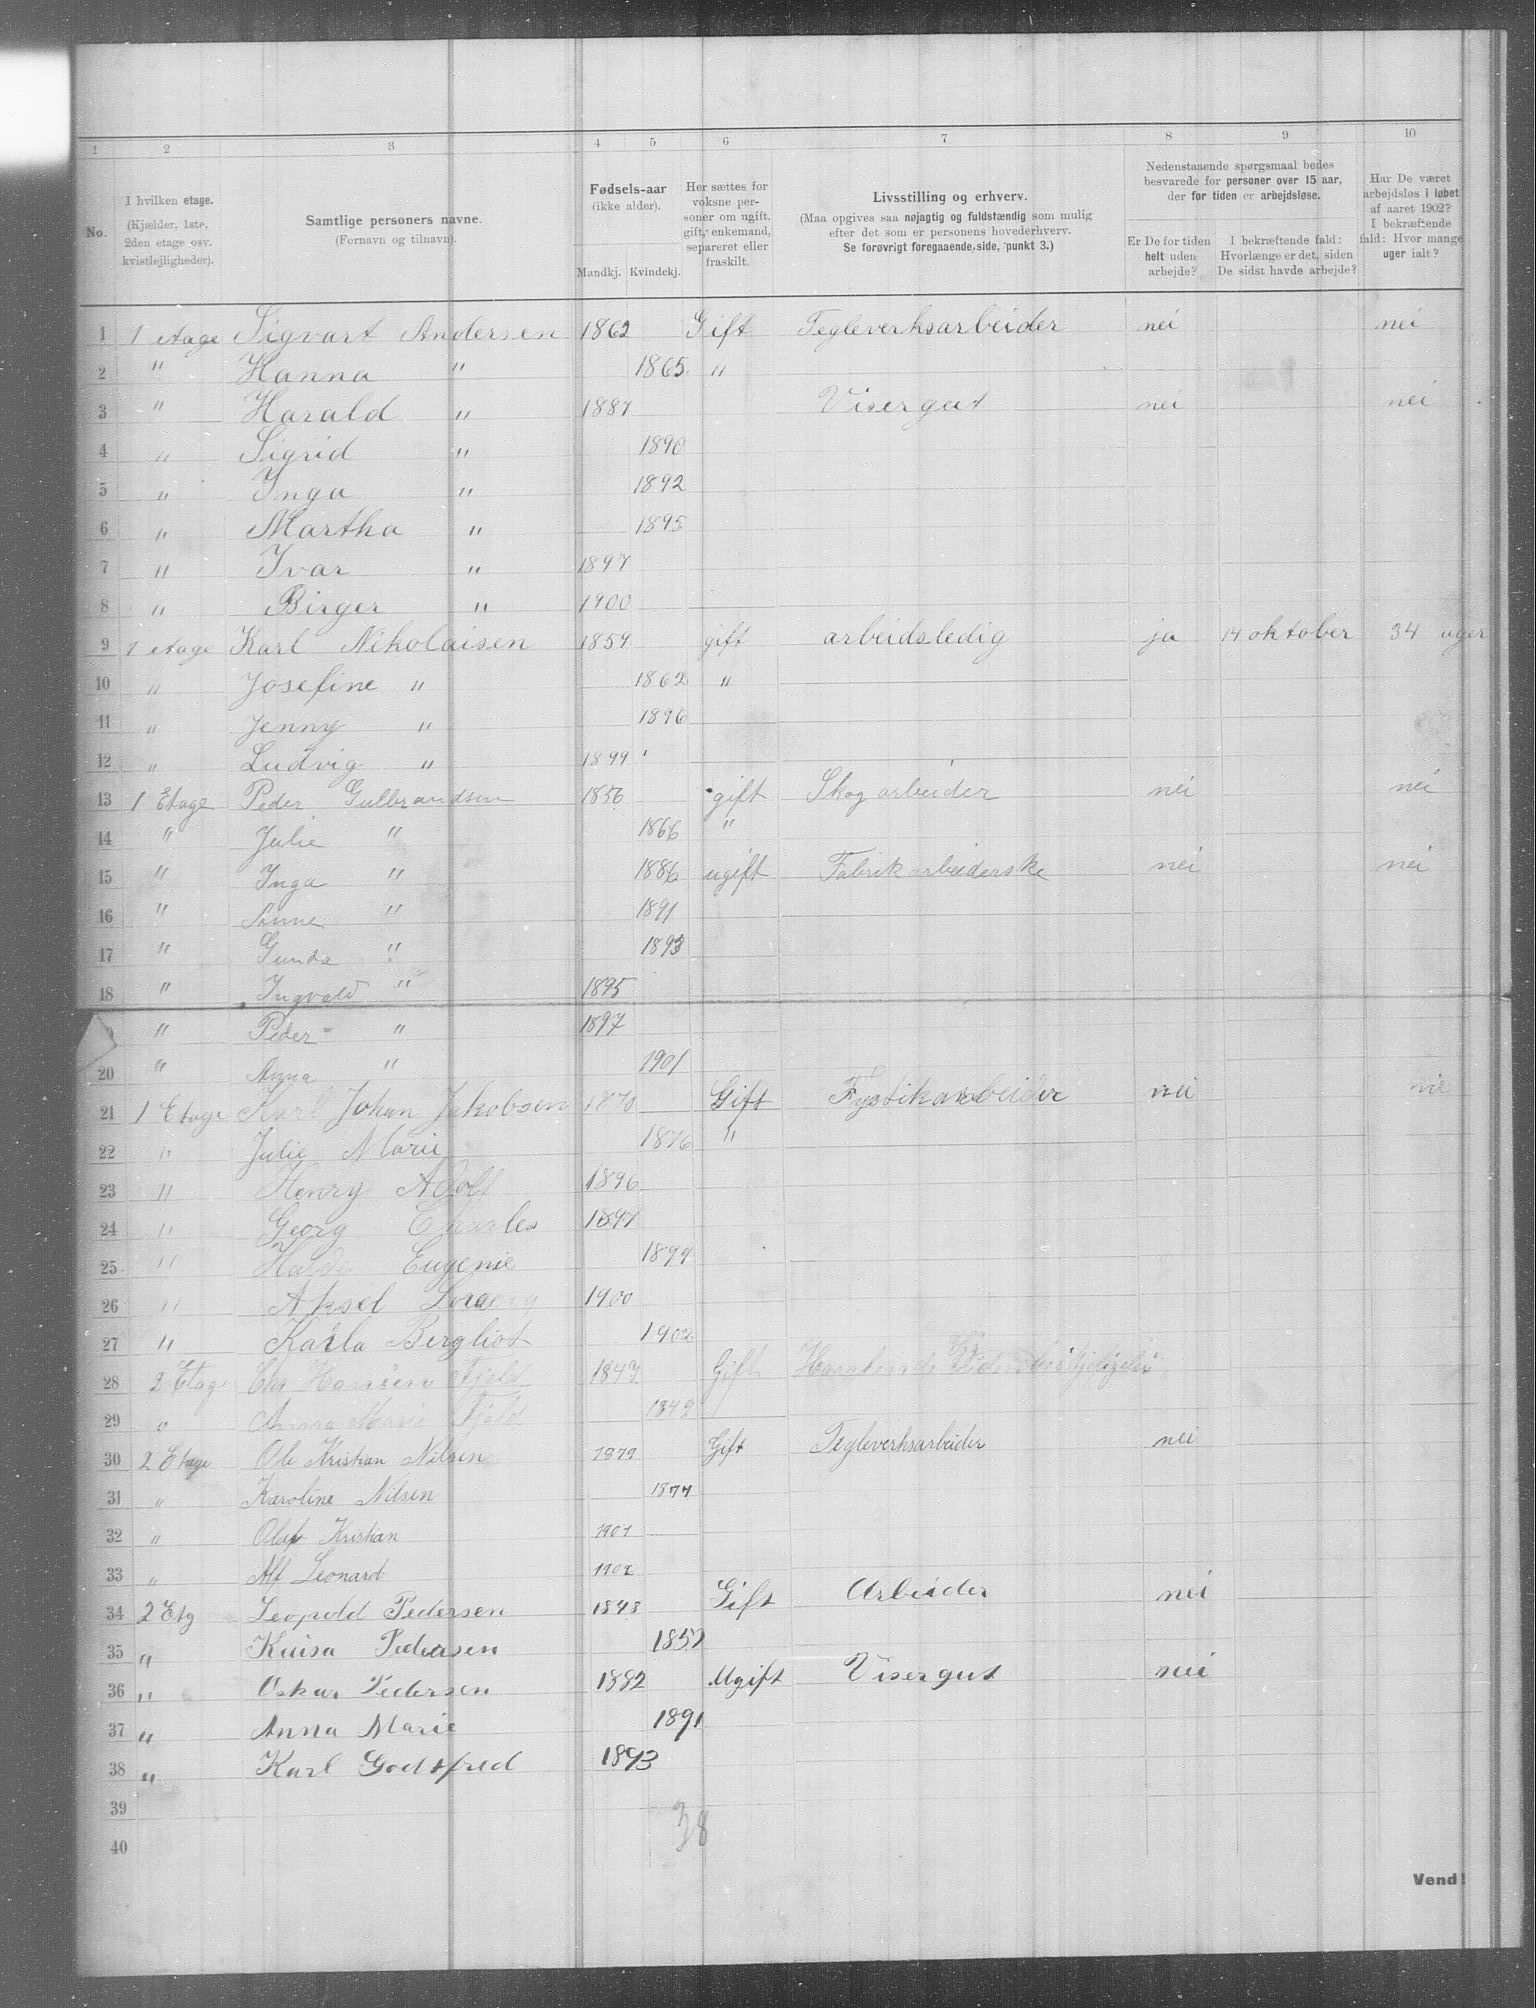 1 2 3 4 5 6 7 8 9 10
No.
I hvilken etage.
(Kjælder, 1ste,
2den etage osv.
kvistlejligheder).
Samtlige personers navne.
(Fornavn og tilnavn).
Fødsels-aar
(ikke alder).
Mandkj. Kvindekj.
Her sættes for
voksne per-
soner om ugift,
gift, enkemand,
separeret eller
fraskilt.
Livsstilling og erhverv.
(Maa opgives saa nøjagtig og fuldstændig som mulig
efter det som er personens hovederhverv.
Se forøvrigt foregaaende side, punkt 3.)
Nedenstaaende spørgsmaal bedes
besvarede for personer over 15 aar,
der for tiden er arbejdsløse.
Er De for tiden
helt uden
arbejde?
I bekræftende fald:
Hvorlænge er det, siden
De sidst havde arbejde?
Har De været
arbejdsløs i løbet
af aaret 1902?
I bekræftende
fald: Hvor mange
uger ialt?
1 1 etage Sigvart Andersen 1862 Gift Tegleverksarbeider nei nei
2 " Hanna " 1865 "
3 " Harald " 1887 Visergut nei nei
4 " Sigrid " 1890
5 " Inga " 1892
6 " Martha " 1895
7 " Ivar " 1897
8 " Birger " 1900
9 1 etage Karl Nikolaisen 1859 gift arbeidsledig ja 14 oktober 34 uger
10 " Josefine " 1862 "
11 " Jenny " 1896
12 " Ludvig " 1899
13 1 Etage Peder Gulbrandsen 1856 gift Skog arbeider nei nei
14 " Julie " 1866 "
15 " Inga " 1886 ugift Fabrik arbeiderske nei nei
16 " " 1891
17 " Gunda " 1893
18 " Ingvald " 1895
" Peder " 1897
20 " Anna " 1901
21 1 Etage Karl Johan Jakobsen 1870 Gift Fystikarbeider nei nie
22 " Julie Marie 1876 "
23 " Henry Adolf 1896
24 " Georg Charles 1897
25 " Eugenie 1899
26 " Aksel 1900
27 " Karla Bergliot 1902
28 2 Etage Chr Hansen Fjeld 1847 Gift
29 " Anna Marie Fjeld 1849
30 2 Etage Ole Kristian Nilsen 1879 Gift Tegleverksarbeider nei
31 " Karoline Nilsen 1877
32 " Olaf Kristian 1901
33 " Alf Leonard 1902
34 2 Etg Leopold Pedersen 1848 Gift Arbeider nei
35 " Pedersen 1851
36 " Oskar Pedersen 1882 Ugift Visergut nei
37 " Anna Marie 1891
38 " Karl Godtfred 1893
39
40
38
Vend!